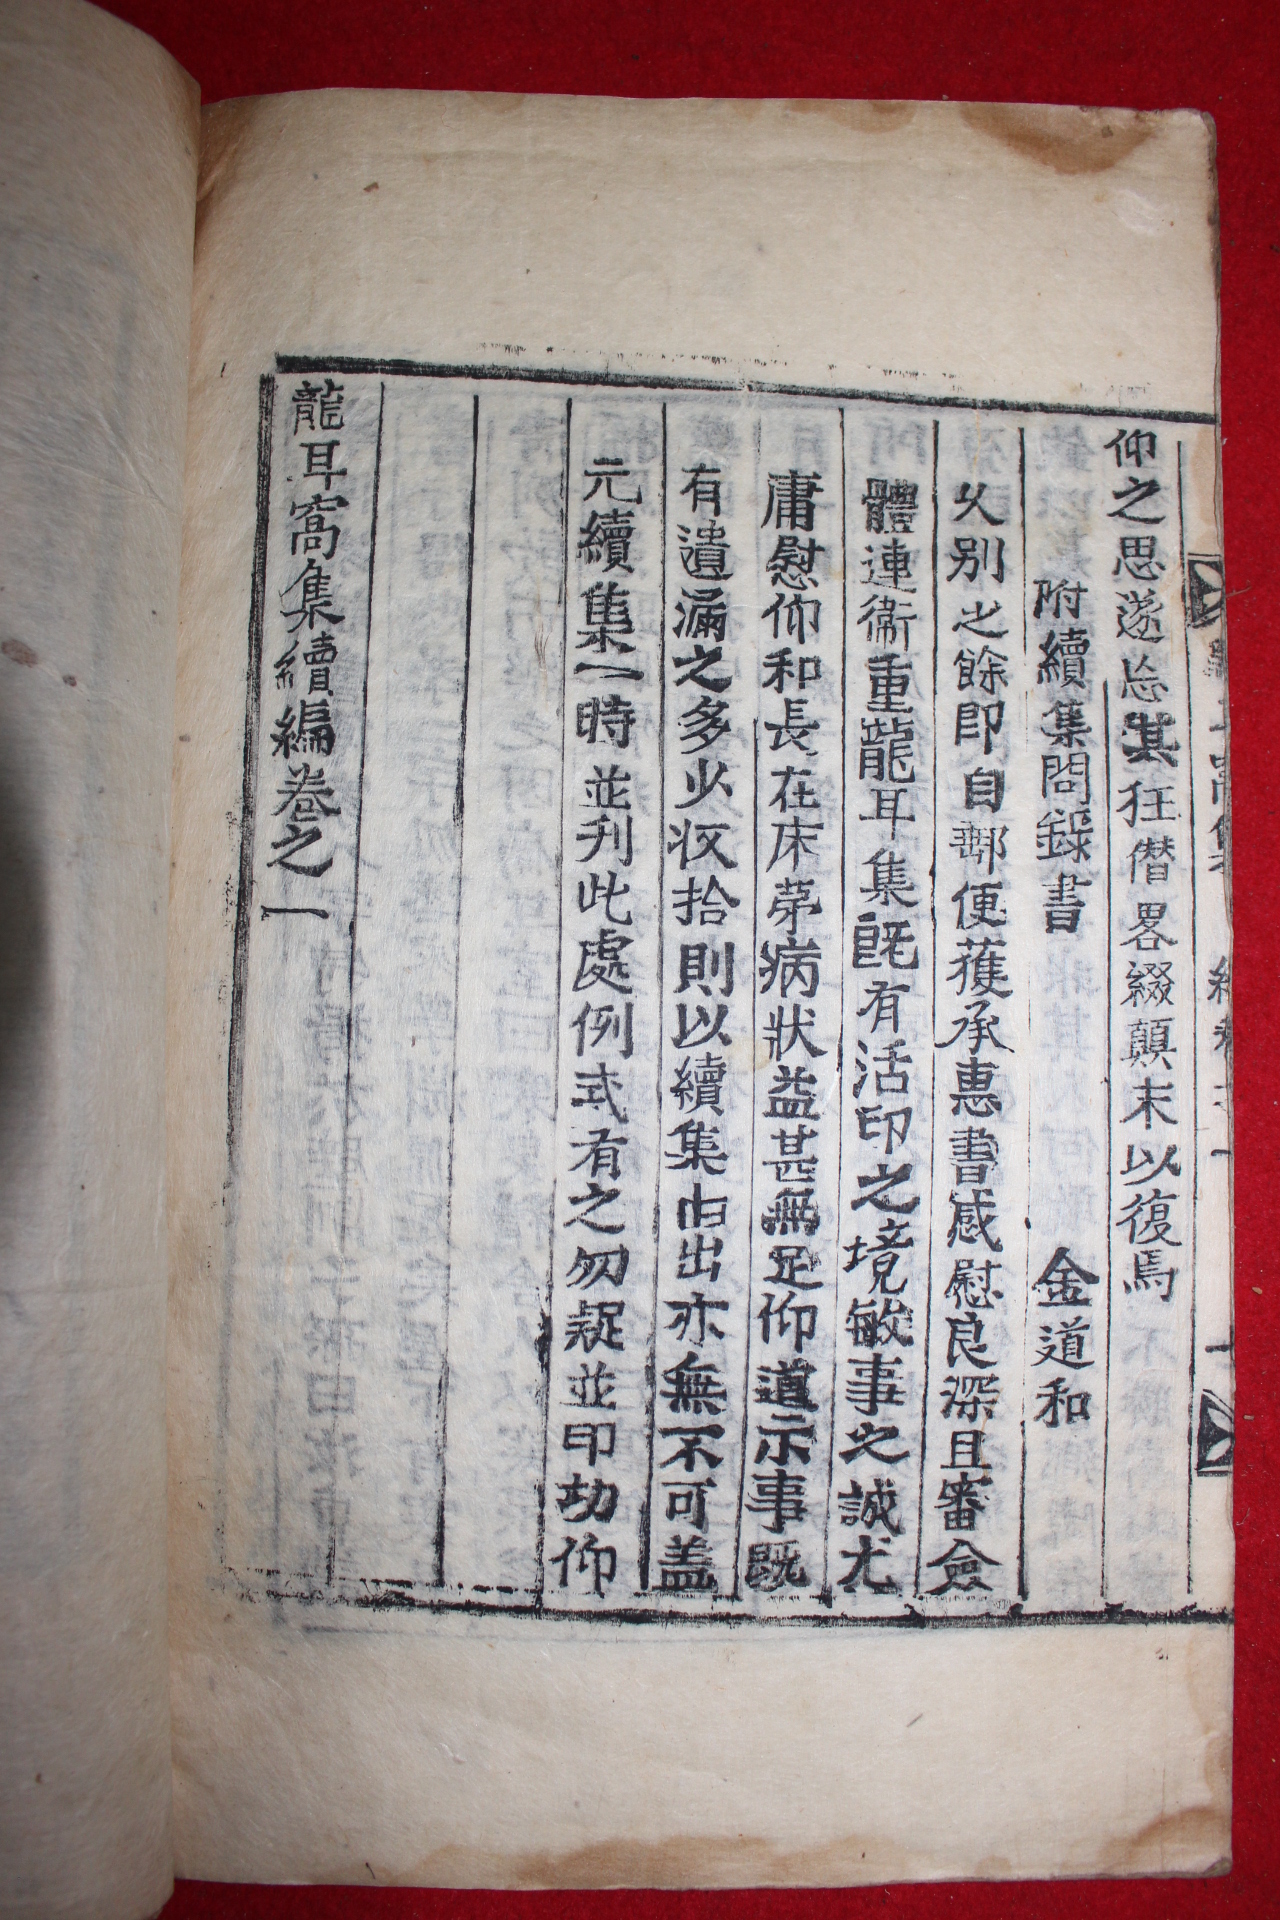 仰之思遂忘其狂僭畧綴顚末以復焉
附續集問錄書 金道和
乆別之餘卽自郵便獲承惠書感慰良深且審僉
體連衞重龍耳集旣有活印之境敏事之誠尤
庸慰仰和長在床苐病狀益甚無足仰道示事旣
有遺漏之多少收拾則以續集由出亦無不可盖
元續集一時並刋此處例式有之勿疑並印功仰
龍耳窩集續編卷之一